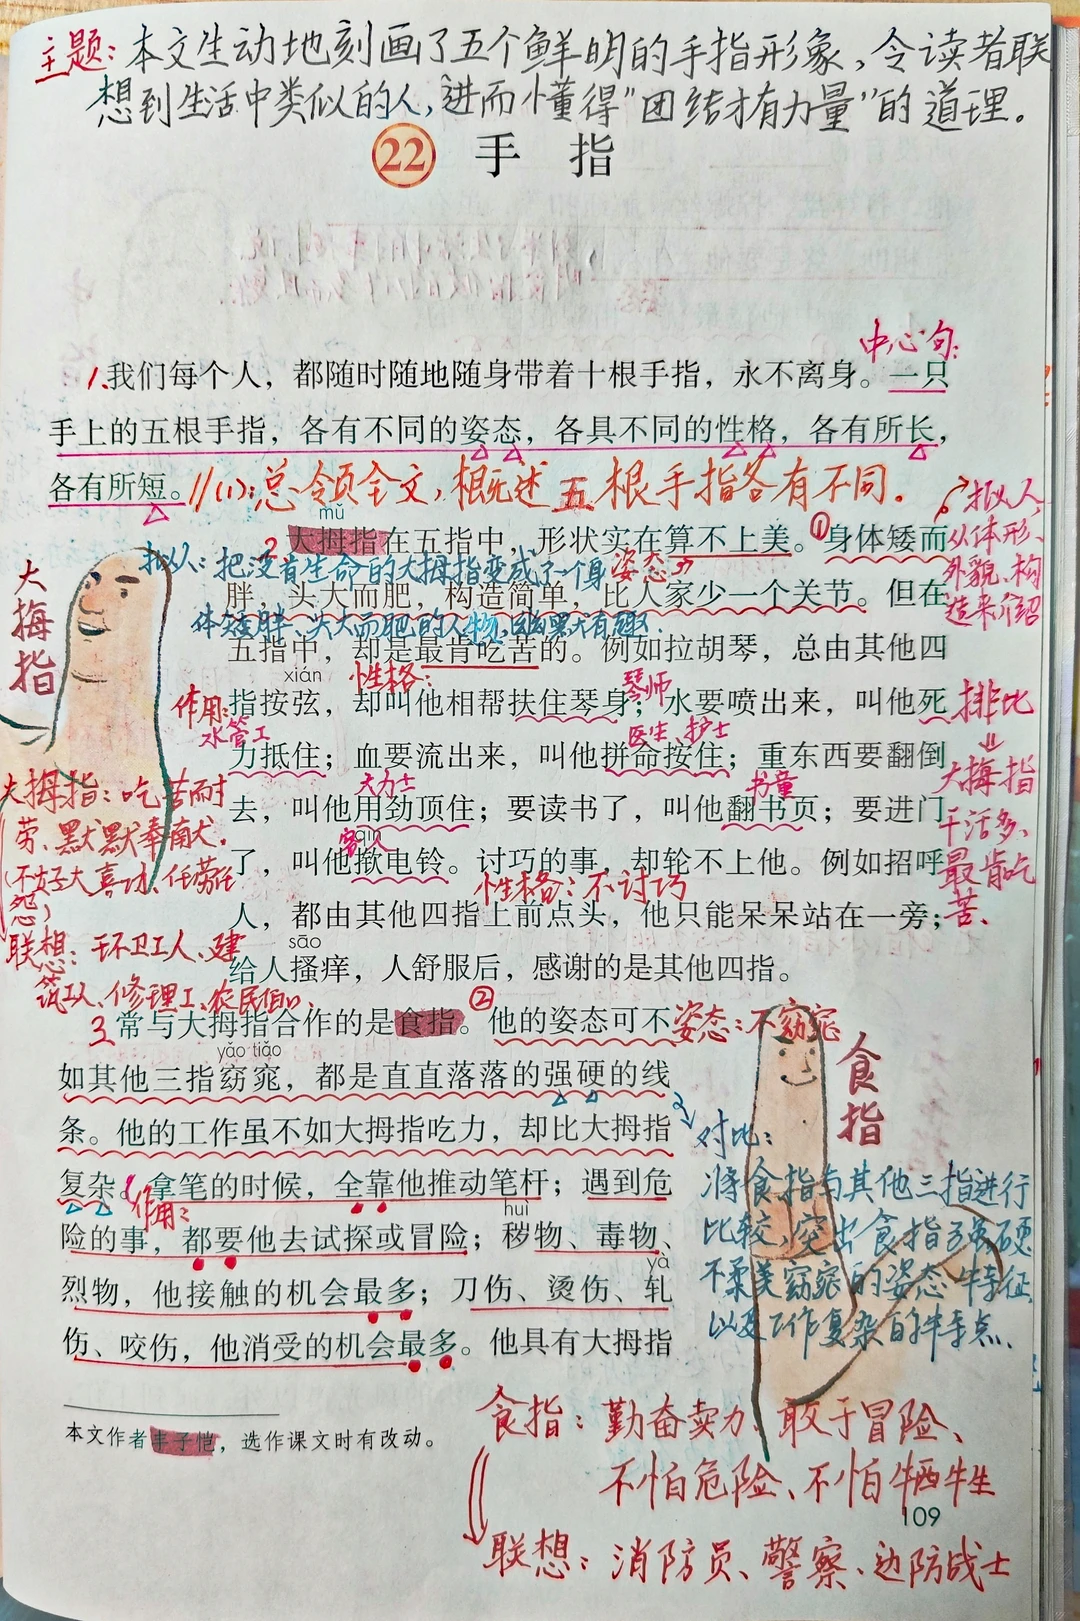 主题：本文生动地刻画了五个鲜明的手指形象，令读者联
想到生活中类似的人，进而懂得“团结才有力量”的道理。
22 手 指
中心句：
1.我们每个人，都随时随地随身带着十根手指，永不离身。一只
手上的五根手指，各有不同的姿态，各具不同的性格，各有所长，
各有所短。//(1)：总领全文，概述五根手指各有不同。
mǔ
2 大拇指在五指中，形状实在算不上美。①身体矮而
拟人：把没有生命的大拇指变成了一个身 姿态
胖，头大而肥，构造简单，比人家少一个关节。但在
体矮胖、头大而肥的人物，幽默有趣。
五指中，却是最肯吃苦的。例如拉胡琴，总由其他四
xián
性格：
琴师
指按弦，却叫他相帮扶住琴身；水要喷出来，叫他死
作用：
水管工
医生、护士
力抵住；血要流出来，叫他拼命按住；重东西要翻倒
大力士
书童
去，叫他用劲顶住；要读书了，叫他翻书页；要进门
客人
qìn
了，叫他揿电铃。讨巧的事，却轮不上他。例如招呼
性格：不讨巧
人，都由其他四指上前点头，他只能呆呆站在一旁；
sāo
给人搔痒，人舒服后，感谢的是其他四指。
拟人，
从体形、
外貌、构
造来介绍
排比
大拇指
干活多、
最肯吃
苦、
大拇指
大拇指：吃苦而耐
劳、默默奉献、
（不好大喜功、任劳任
怨）
联想：环卫工人、建
筑工人、修理工、农民伯伯、
3 常与大拇指合作的是食指。②他的姿态可不 姿态：不窈窕
yǎo tiǎo
如其他三指窈窕，都是直直落落的强硬的线
条。他的工作虽不如大拇指吃力，却比大拇指
复杂。拿笔的时候，全靠他推动笔杆；遇到危
作用：
huì
险的事，都要他去试探或冒险；秽物、毒物、
yà
烈物，他接触的机会最多；刀伤、烫伤、轧
伤、咬伤，他消受的机会最多。他具有大拇指
食指
对比：
将食指与其他三指进行
比较，突出食指强硬
不柔美窈窕的姿态特征
以及工作复杂的特点、
本文作者丰子恺，选作课文时有改动。
食指：勤奋卖力、敢于冒险、
不怕危险、不怕牺牲
109
联想：消防员、警察、边防战士